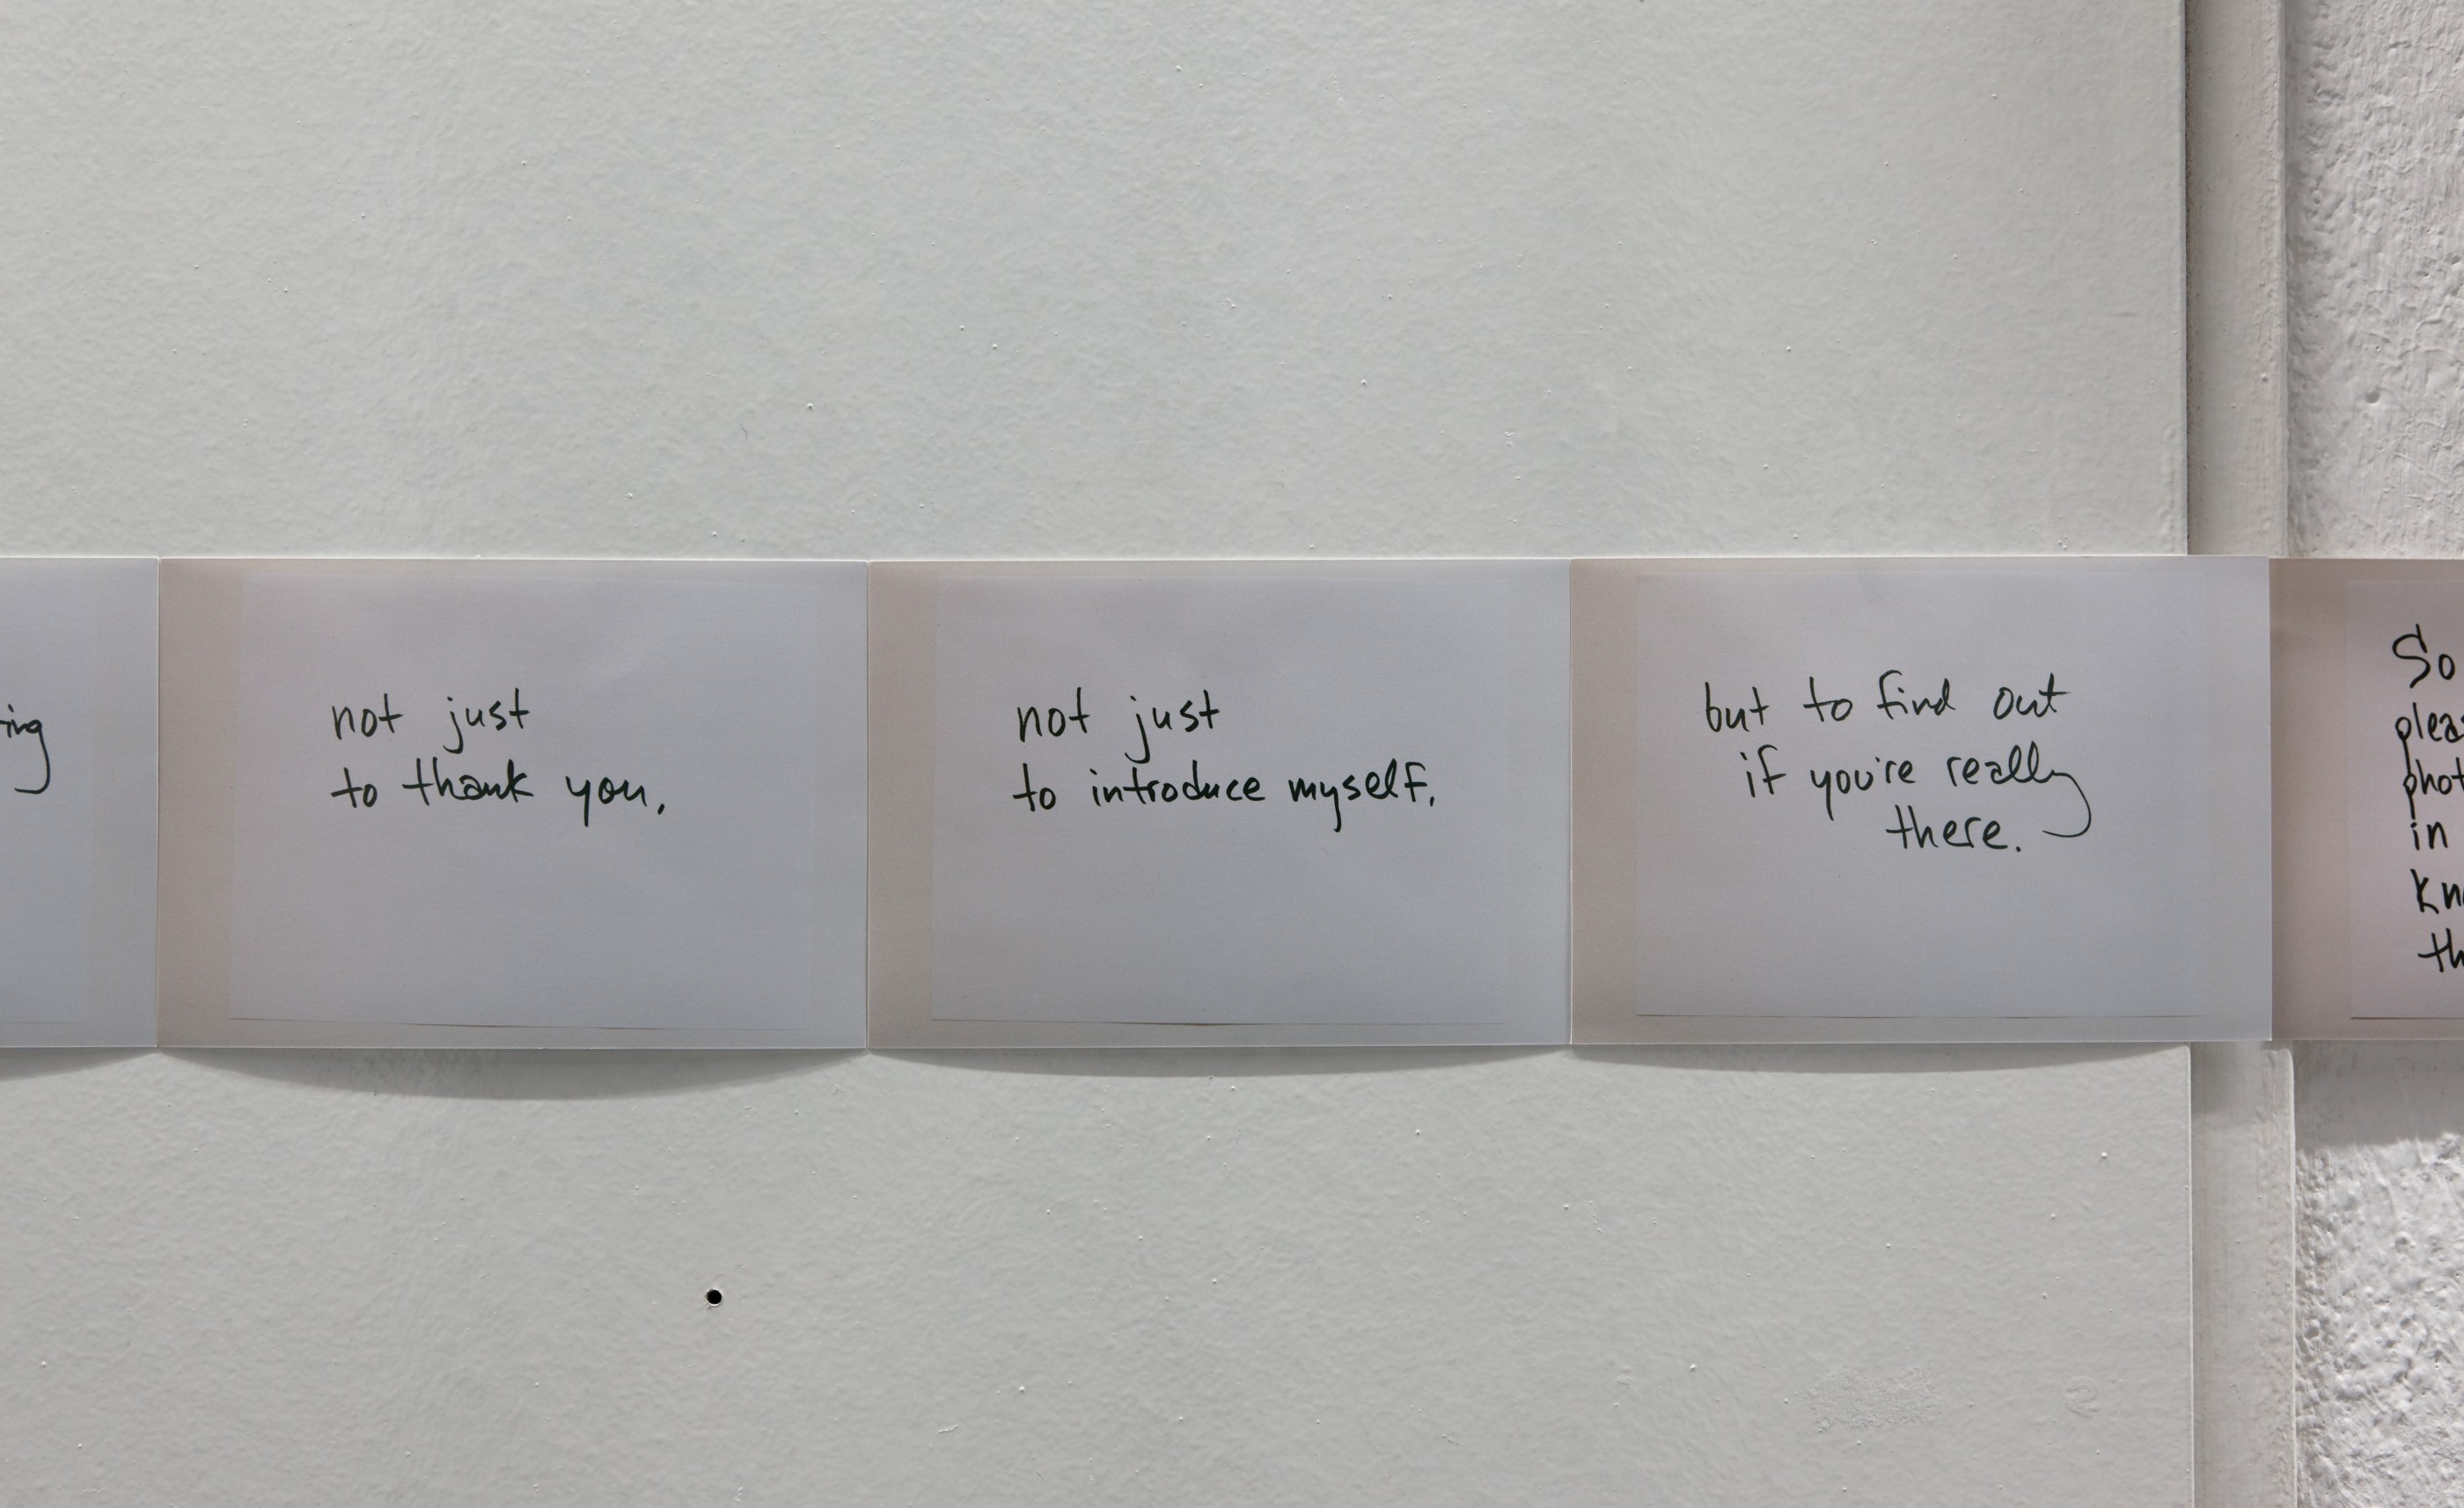 not just
to thank you,
not just
to introduce myself,
but to find out
if you're really
there.
So
in